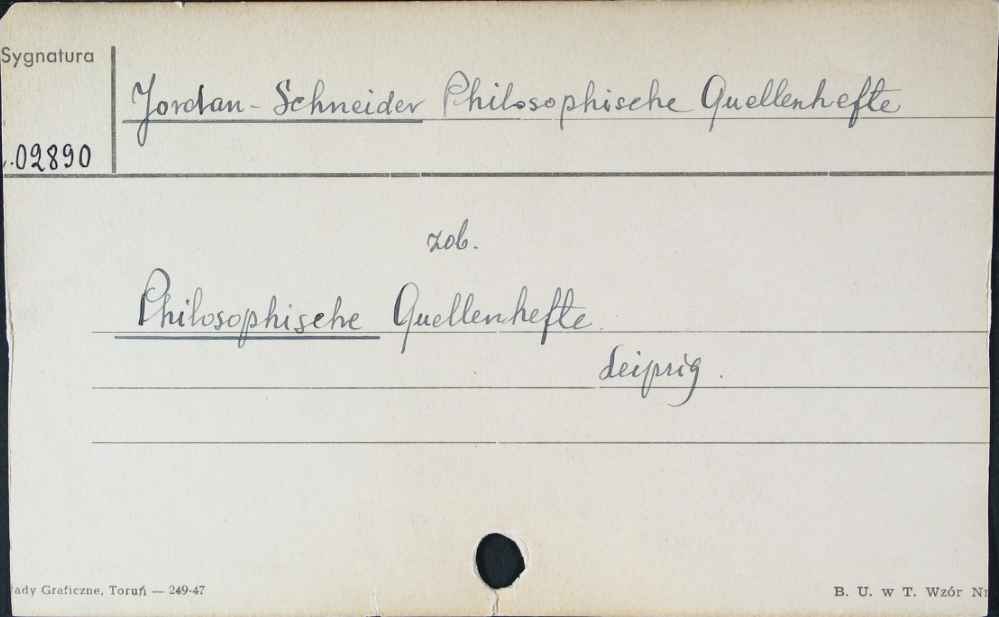 Sygnatura
Jordan - Schneider Philosophische Quellenhefte
02890
zob.
Philosophische Quellenhefte
Leipzig.
ady Graficzne, Toruń — 249-47
B. U. w T. Wzór Nr